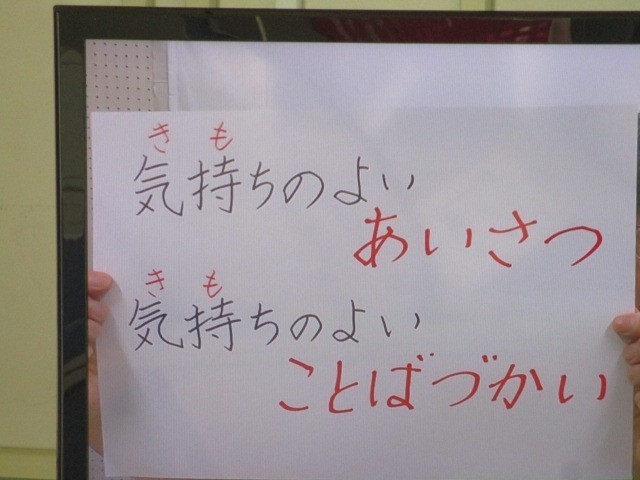 きも
気持ちのよい
あいさつ
きも
気持ちのよい
ことばづかい